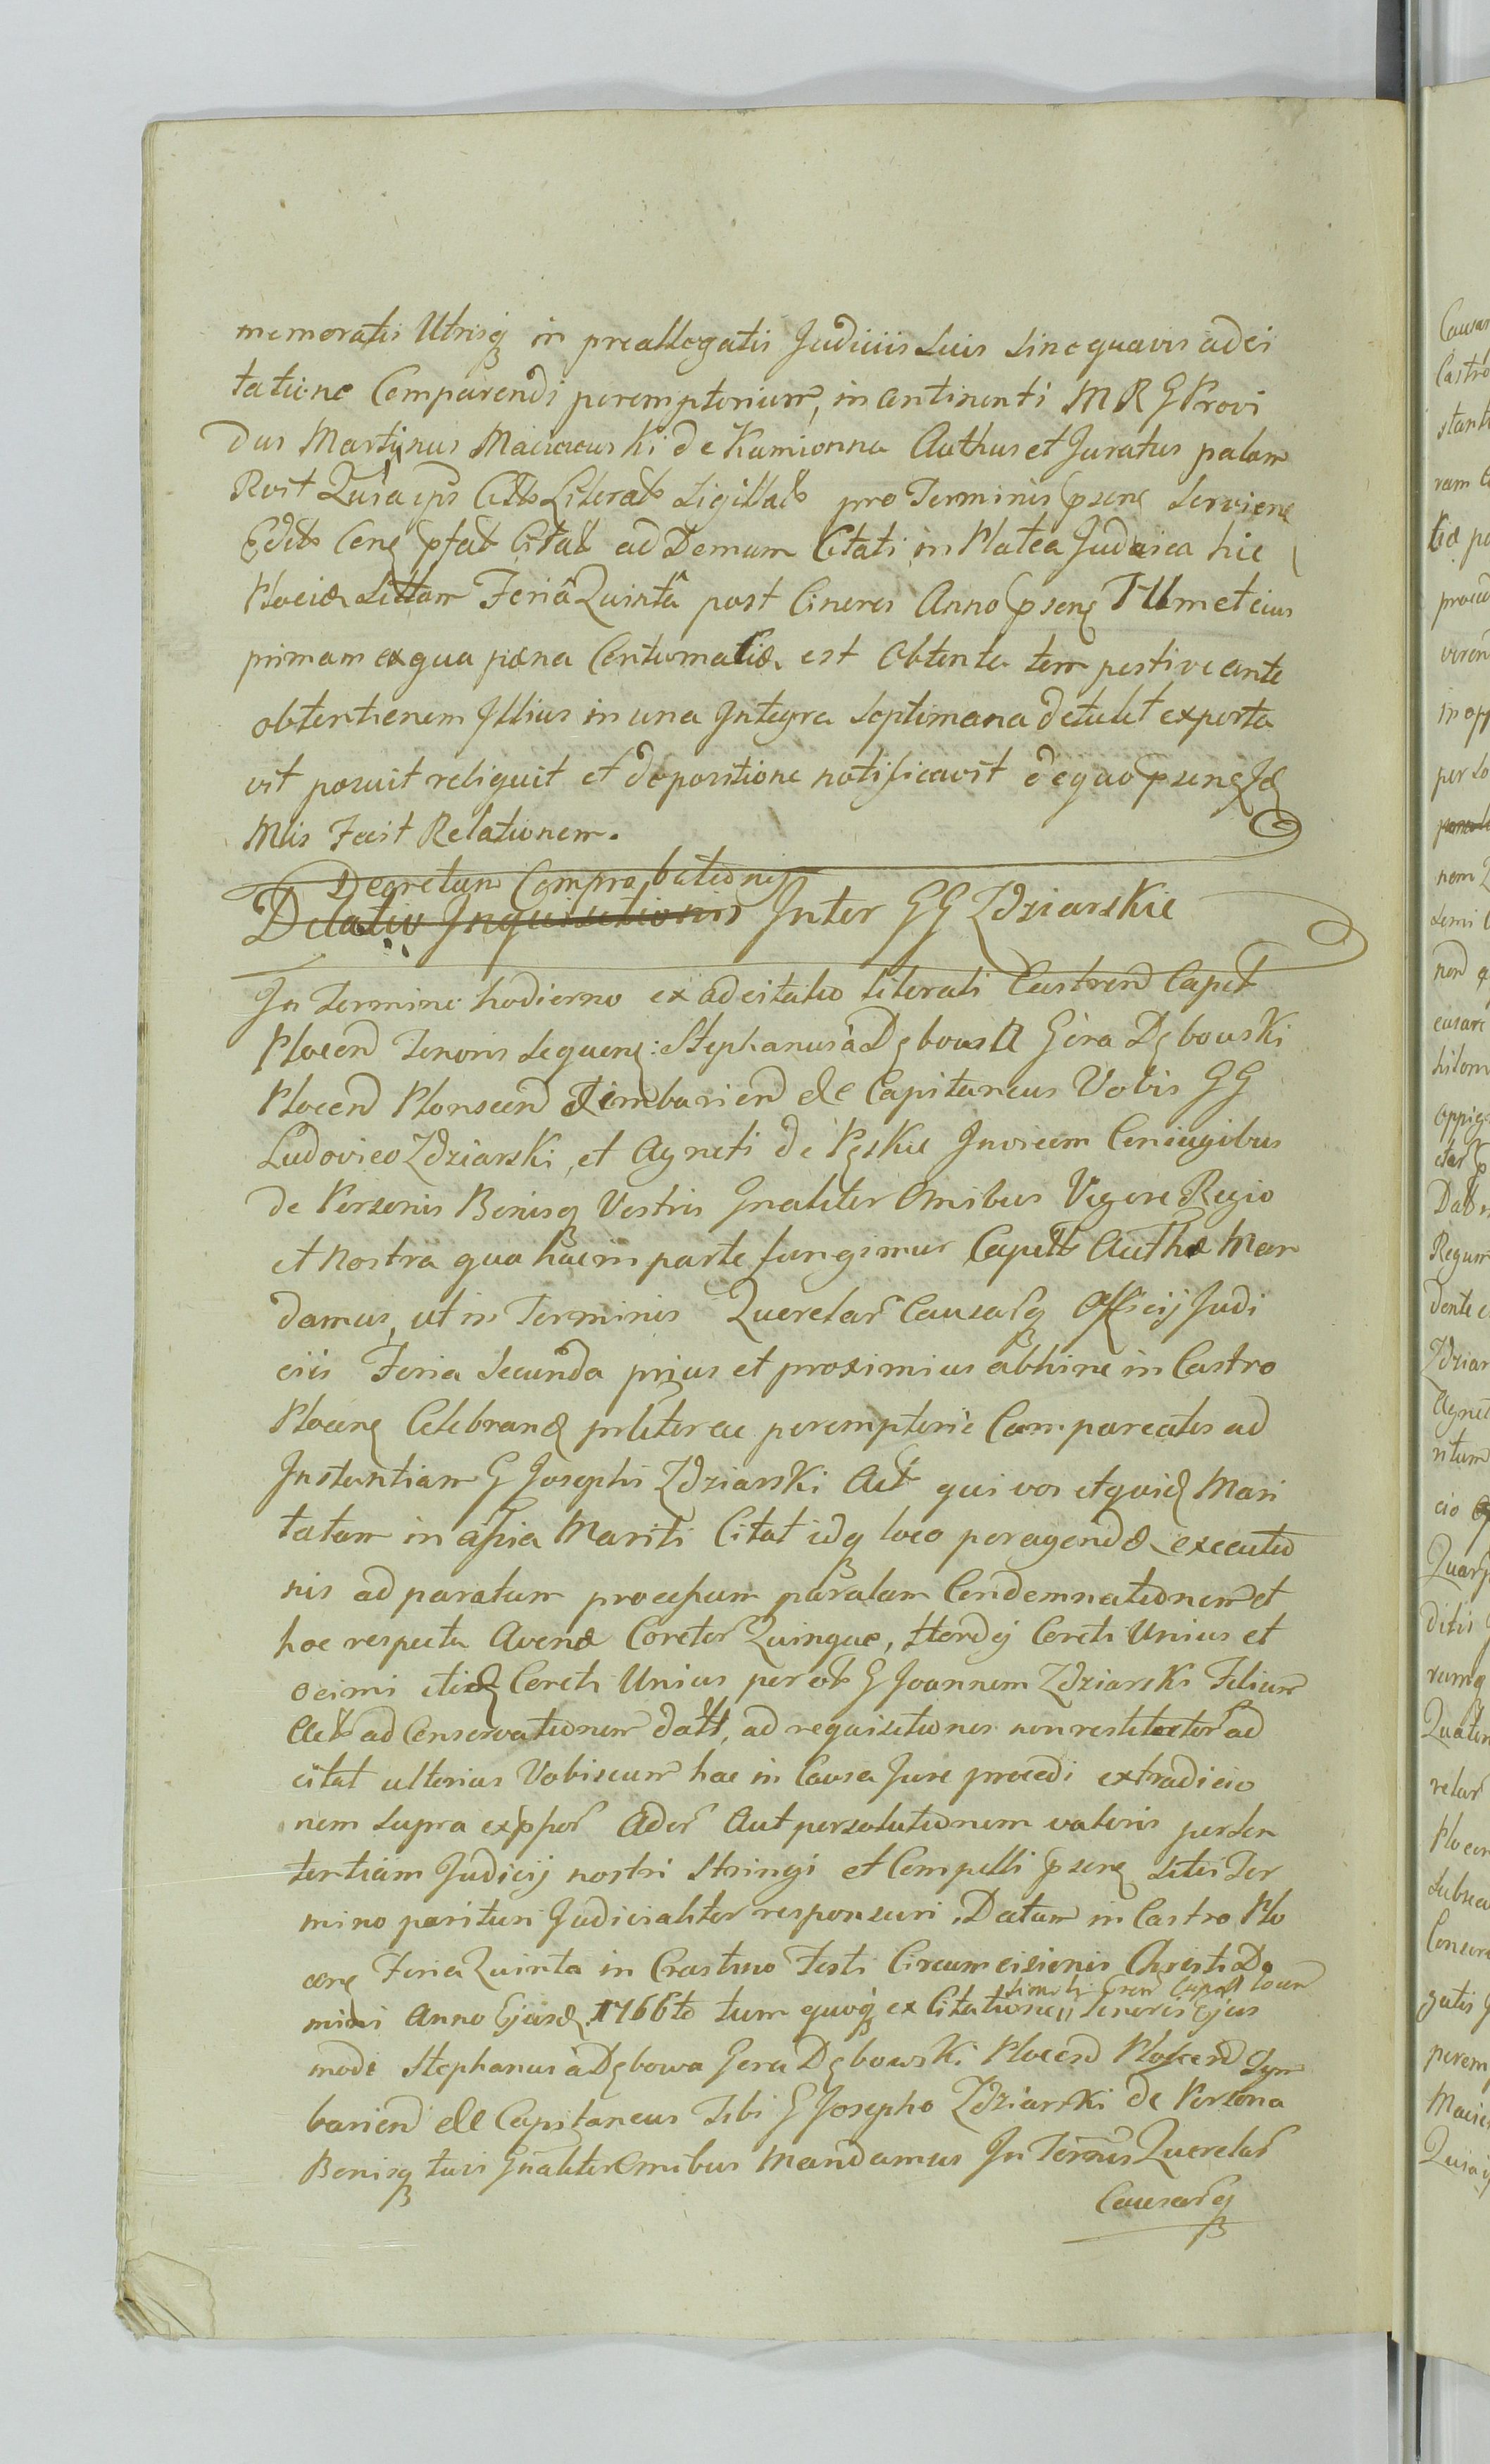 memoratis Utrisq in preallegatis Judiciis Suis Sine quavis adci
tatione Comparendi peremptorium, in Continenti M R G Provi
dus Martinus de Kamionna Authus et Juratus palam
Rvit Quia ips Cttts Literats Sigillats pro Terminis psens Serviens
Edits Cens pfat Citats ad Domum Citati in Platea Judaica hic
Plociæ Sittam Feriâ Quintâ post Cineres Anno psens et eius
primam ex qua pæna Contumatiæ est Obtenta tem pestive ante
obtentionem Illius in una Integra Septimana detulit exporta
vit posuit reliquit et depositione notificavit de quo psens Id
Mlis Fecit Relationem.
Decretum Comprobationis
Delatio Inquisitionis Inter GG Zdziarskie
In Termino hodierno ex adcitatio Literali Castrend Capit
Plocend Tenoris Sequens: Stephanus à Dębowa Góra Dębowski
Plocend Plonscend Zimbariend &c Capitaneus Vobis GG
Ludovico Zdziarski, et Agneti de Pęskie Invicem Coniugibus
de Personis Bonisq Vestris Gnaliter Omibus Vigore Regio
et Nostra qua hac in parte fungimur Capitts Authæ Man
damus, ut in Terminis Querelar Causarq Officij Judi
ciis Feria Secunda prius et proximius abhinc in Castro
Plocens Celebrand prliter ac peremptorie Compareatis ad
Instantiam G Josephi Zdziarski Act qui vos et quid Mari
tatam in assia Mariti Citat idq loco peragendæ executio
nis ad paratum processum paratam Condemnationem et
hoc respectu Avenæ Coretor Quinque, Hordej Coreti Unius et
ocimi itid Coreti Unius per ob G Joannem Zdziarski Filium
Act ad Conservationem datt, ad requisitiones non restitutor ad
citat ulterius Vobiscum hac in Causa Jure procedi extradicio
nem Supra exppor Ador Aut persolutionem valoris per Sen
tentiam Judicij nostri Stringi et Compelli psens Sitis Ter
mino parituri Judicialiter responsuri. Datum in Castro Plo
cens Feria Quinta in Crastino Festi Circumcisionis Christi Do
mini Anno Ejusd 1766to tum quoq ex Citatione Simili Locen Tenoris Ejus
modi Stephanus à Dębowa Gora Dębowski Plocend Plonscend Zym
bariend &c Capitaneus Tibi G Josepho Zdziarski de Persona
Bonisq tuis Gnaliter Omibus Mandamus In Termis Querelar
Causarq